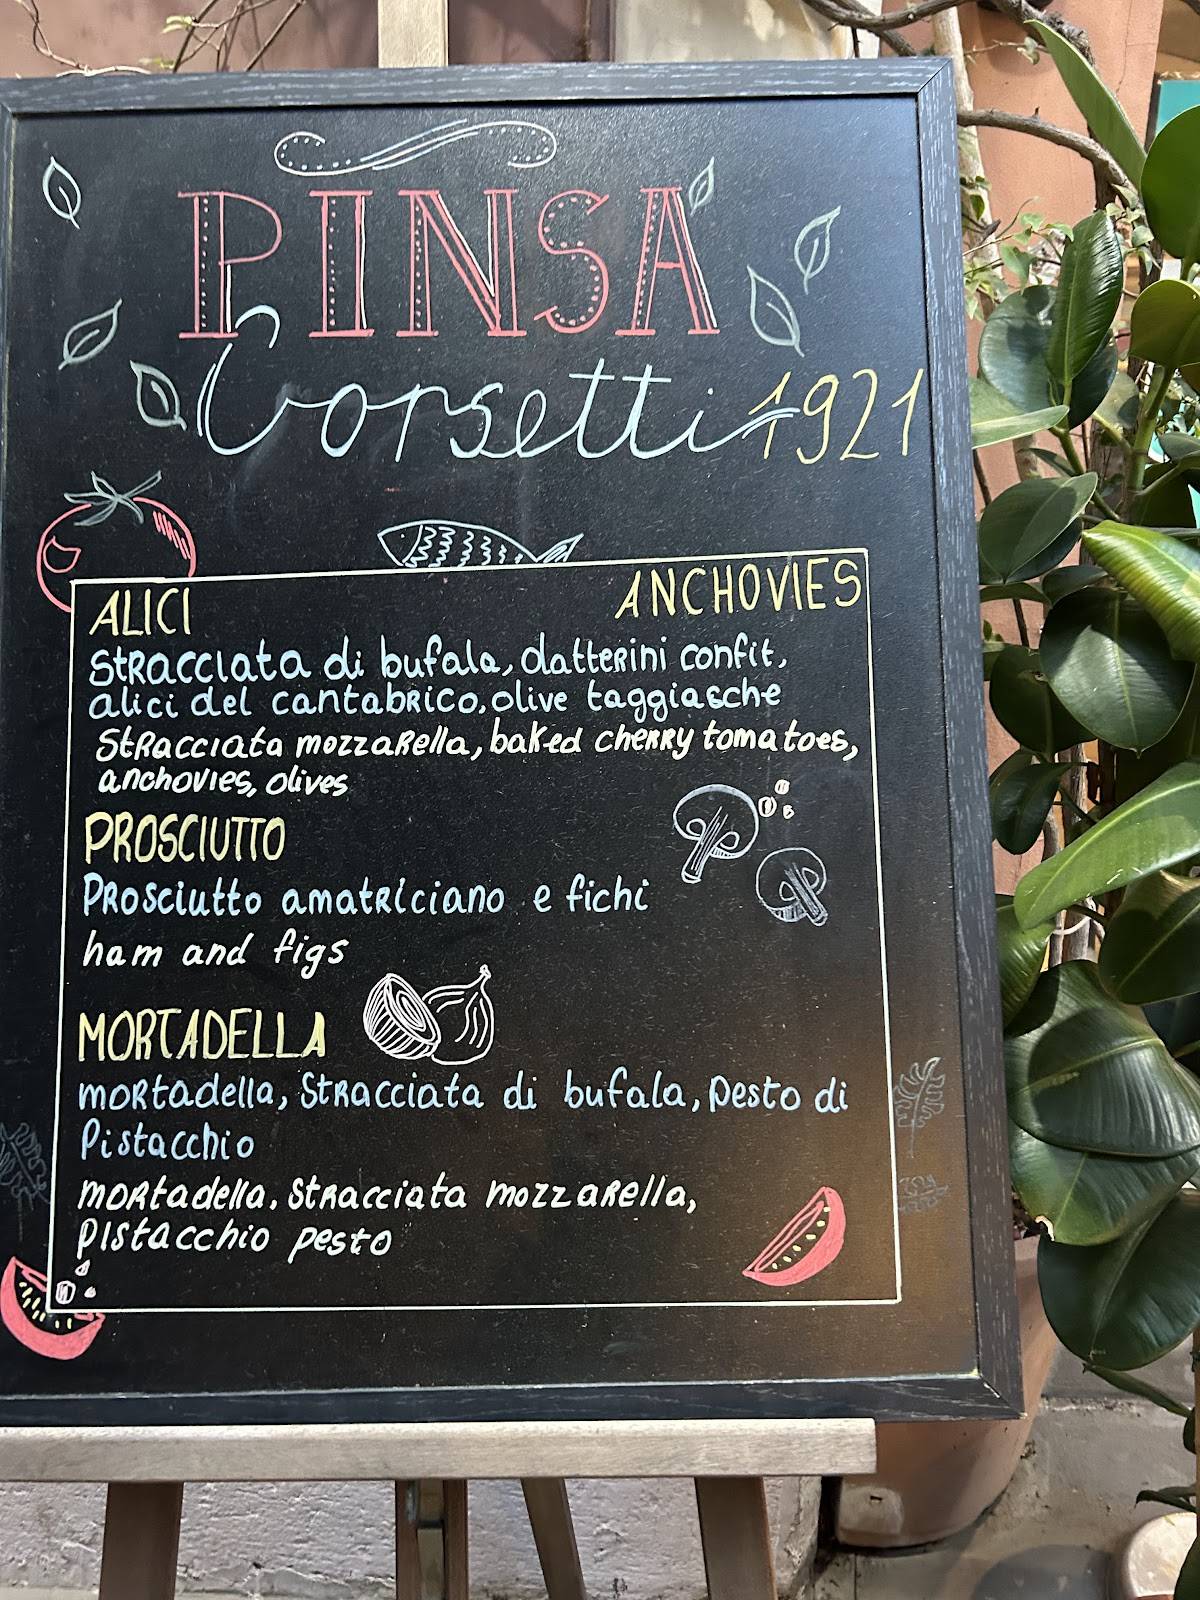 PINSA
Corsetti 1921
ALICI ANCHOVIES
Stracciata di bufala, datterini confit,
alici del cantabrico, olive taggiasche
Stracciata mozzarella, baked cherry tomatoes,
anchovies, olives
PROSCIUTTO
Prosciutto amatriciano e fichi
ham and figs
MORTADELLA
mortadella, Stracciata di bufala, pesto di
Pistacchio
mortadella, Stracciata mozzarella,
Pistacchio pesto